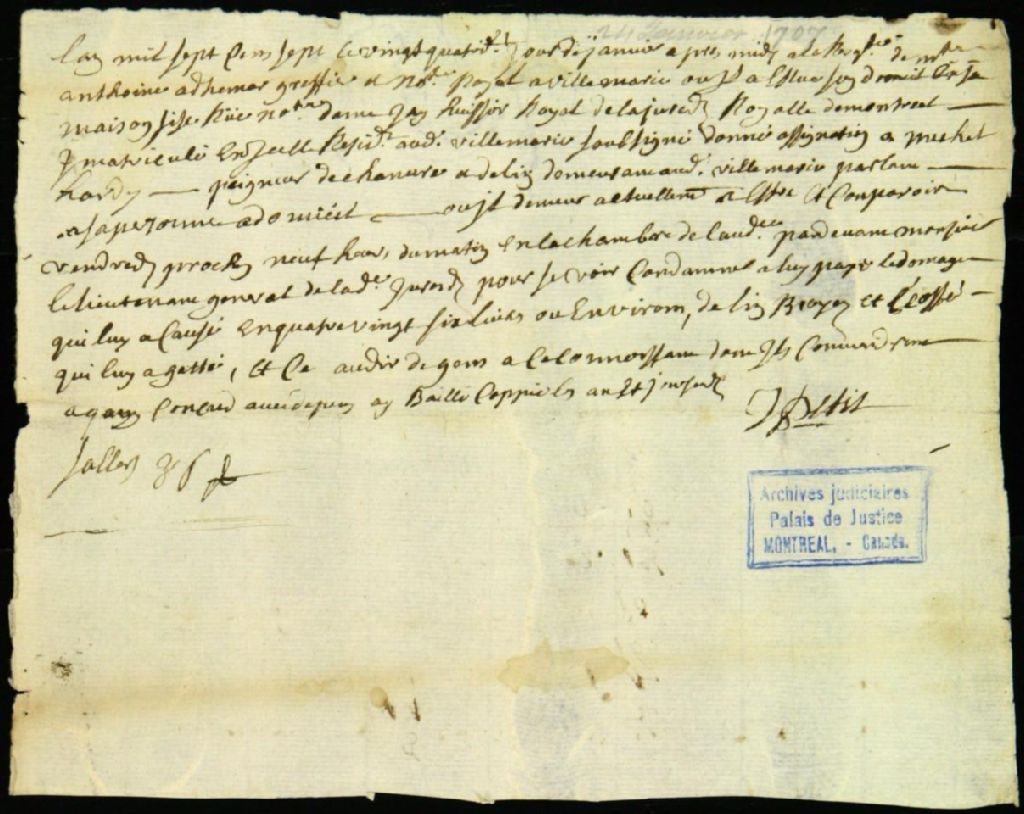 24 Janvier 1707
Lan mil sept Cens sept le vingt quatre jour de janvier apres midy a la Req.te de m.re
anthoine adhemar greffier et no.re Royal a villemarie ou Il a Esleu son domicil En sa
maison sise Rüe no.re dame Jay huissier Royal de la jurisd. Royalle de montreal
Jmatriculé En Icelle Resid.t aud. villemarie soubsigné donné assignation a michel
hardy peigneur de chanvre et de lin demeurant aud. villemarie parlant
a sa personne a domicil ou Il demeure actuellem.t a Estre Et Comparoir
vendredy prochn neuf heures du matin En la chambre de laud.ce pardevant monsieur
le lieutenant general de lad. Jurisd. pour se voir Condamner a luy payer le domage
qui luy a Causé En quatre vingt six livres ou Environ, de lin Broyé Et
qui luy a gatté, Et Ce au dire de gens a Ce Connoissant dont Ils Conviendront
avec depens ay Baillé Coppie les an Et jour susd.
JPetit
Archives judiciaires
Palais de Justice
MONTREAL. - Canada.